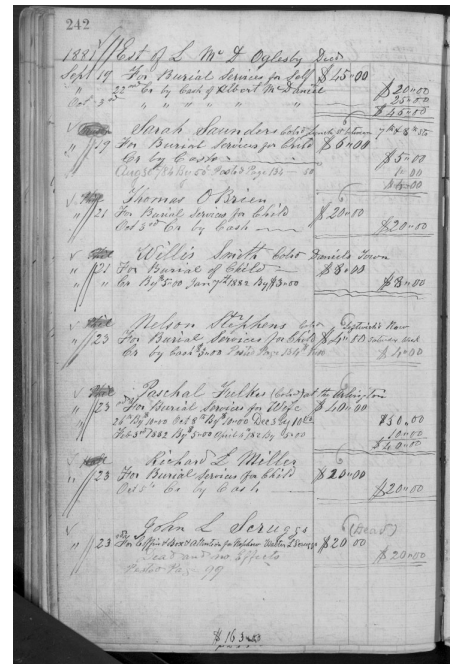 242
1881 Est of L McD Oglesby Died
Sept 19 For Burial Services for Self $45.00
" 22nd Cr by Cash of Albert McDaniel $20.00
Oct 3rd " " " " " " 25.00
$45.00
Sarah Saunders Cold Lynch St between 7th & 8th Sts
" 19 For Burial Services for Child $6.00
" Cr by Cash $5.00
Posted Page 134 1.00
$6.00
Thomas O'Brien
" 21 For Burial Services for Child $20.00
Oct 3rd Cr by Cash $20.00
Willis Smith Cold Daniels Town
" 21 For Burial of Child $8.00
" " Cr By $5.00 Jany 7th 1882 By $3.00 $8.00
Nelson Stephens Cold Row
" 23 For Burial Services for Child $4.00
Cr by Cash $3.00 Posted Page 134 $4.00
Paschal Fulkes (Cold) at the Arlington
" 23 For Burial Services for Wife $40.00
26th By $10.00 Oct 8th By $10.00 Dec 3 by 10.00 $30.00
Feb 3rd 1882 By $5.00 April 6 /82 By $5.00 10.00
$40.00
Richard L Miller
" 23 For Burial Services for Child $20.00
Oct 5th Cr by Cash $20.00
John L Scruggs (Dead)
" 23 For Coffin & Box & Attention for Nephew Walter L Scruggs $20.00
Dead and no Effects $20.00
99
$163.00